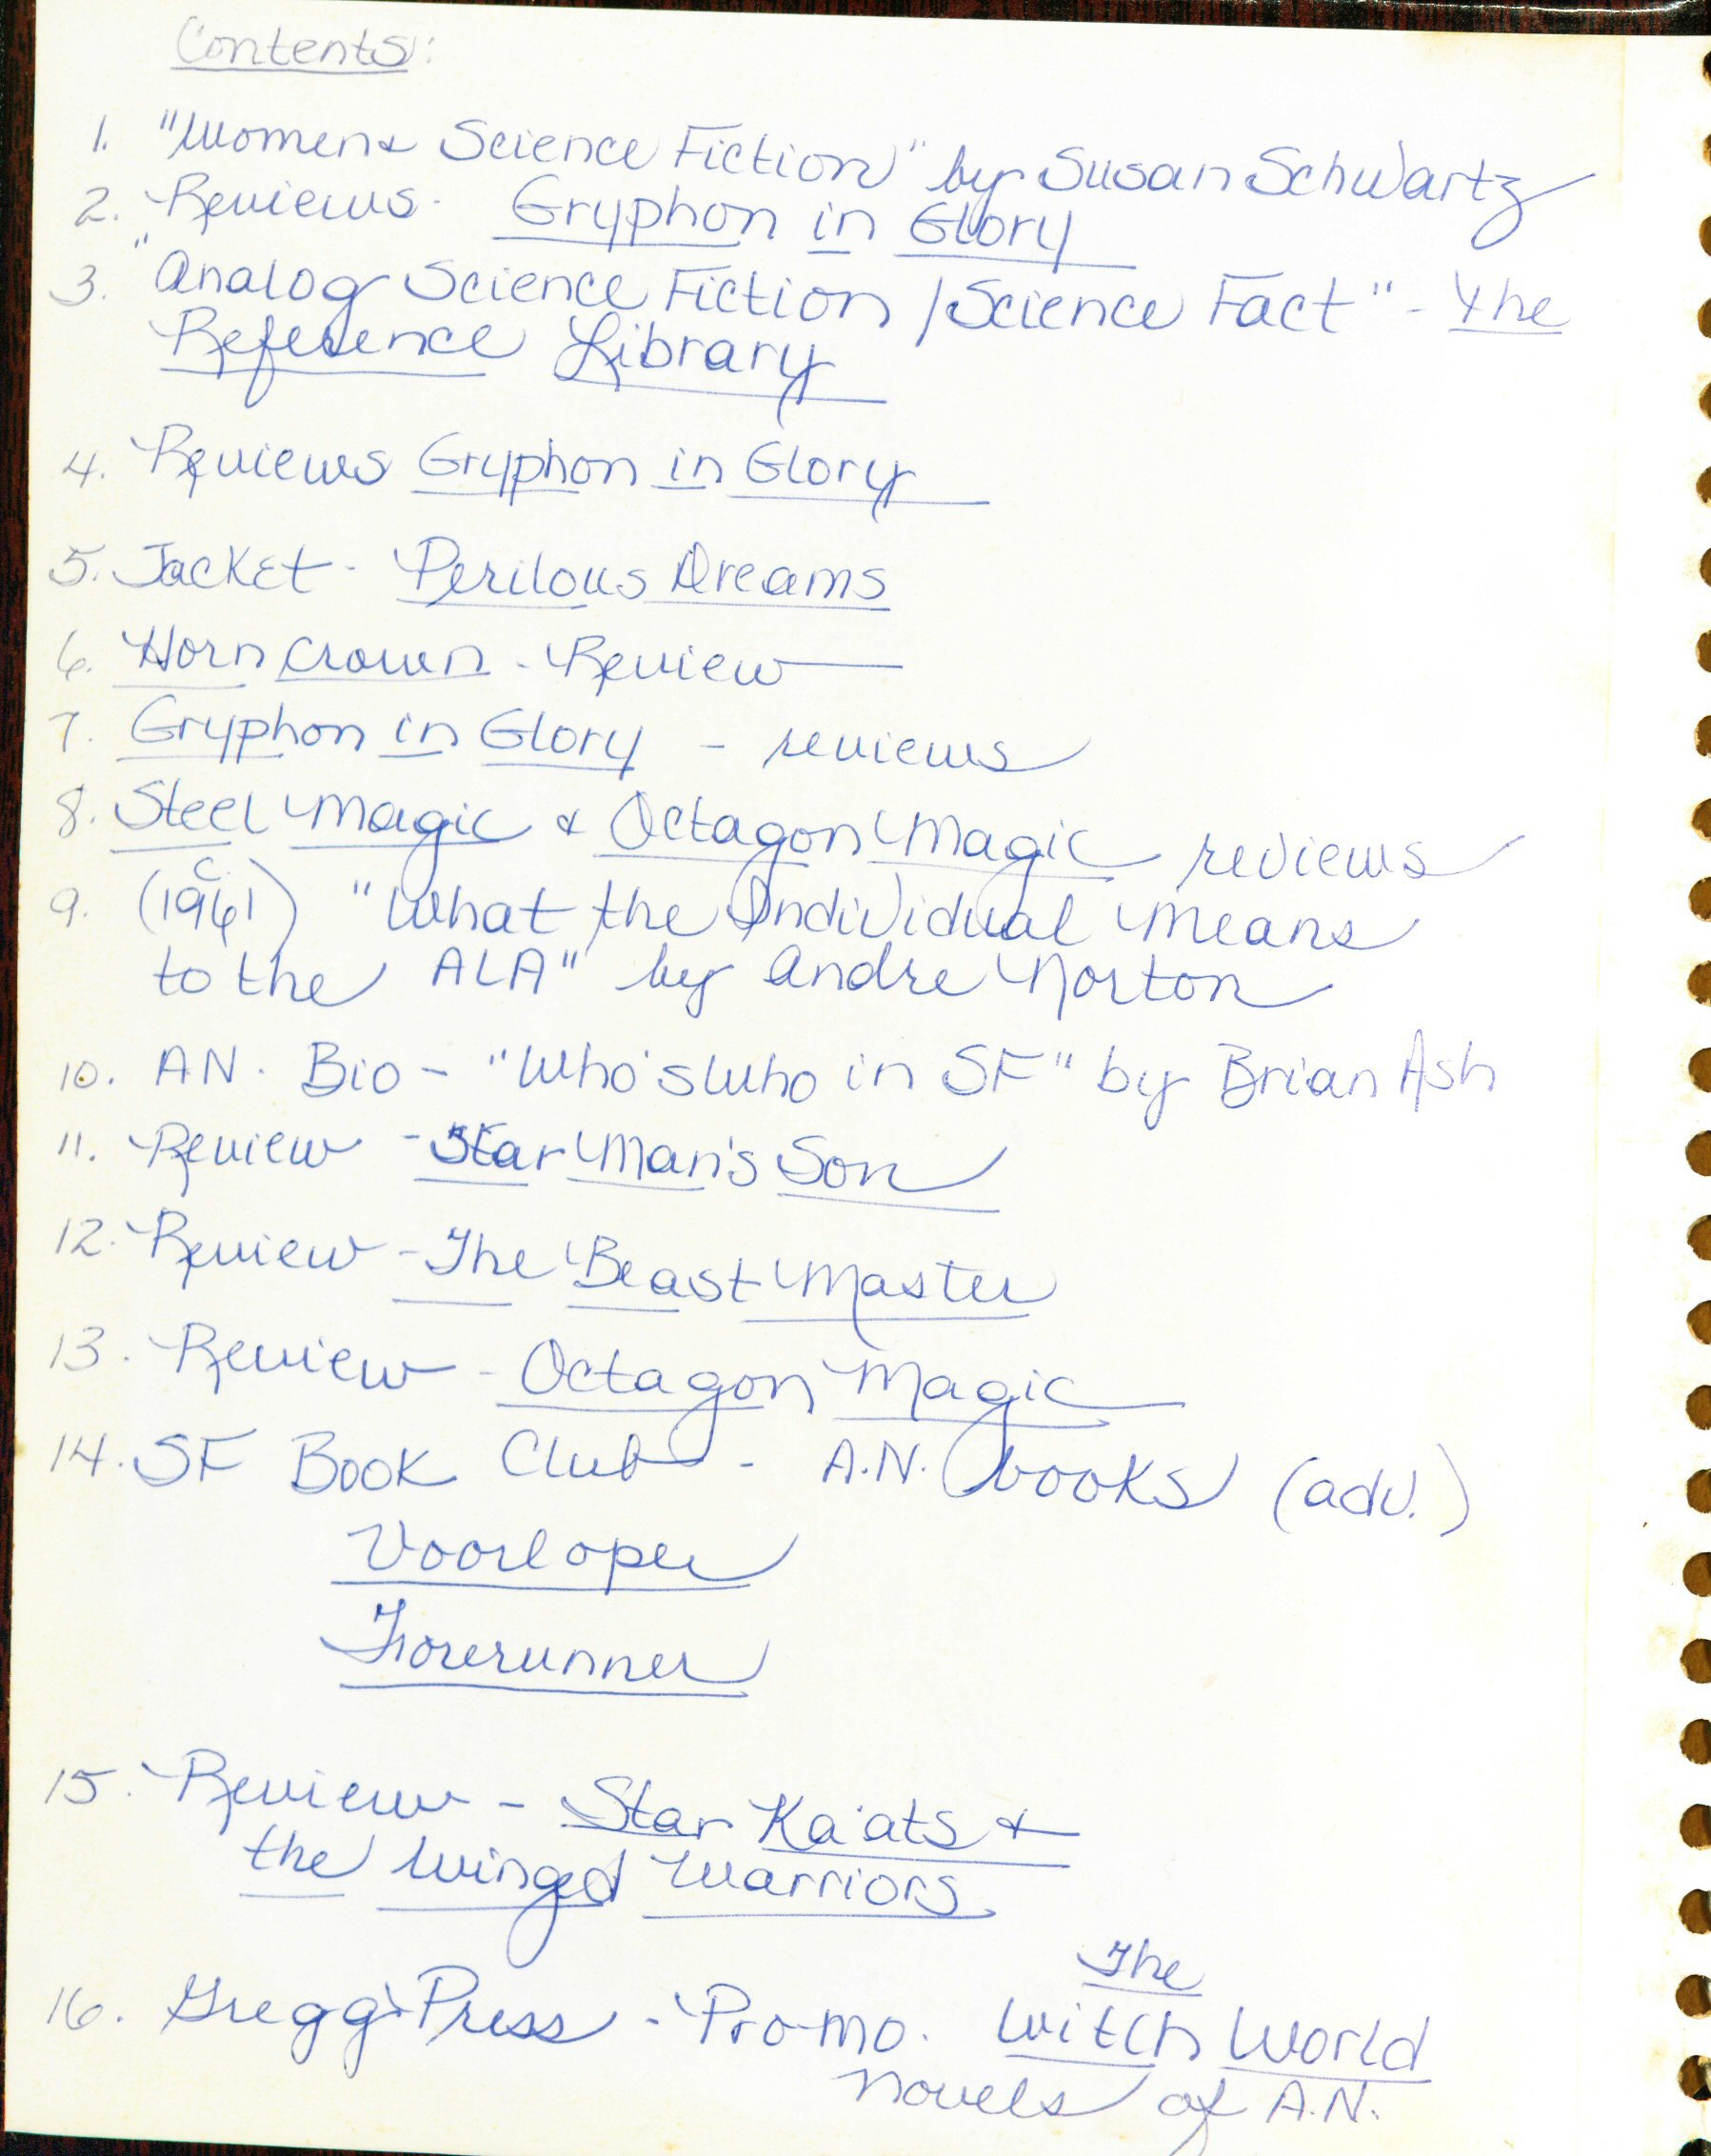 Contents:
1. "Women & Science Fiction" by Susan Schwartz
2. Reviews - Gryphon in Glory
3. "Analog Science Fiction / Science Fact" - The
Reference Library
4. Reviews Gryphon in Glory
5. Jacket - Perilous Dreams
6. Horn Crown - Review
7. Gryphon in Glory - reviews
8. Steel Magic & Octagon Magic reviews
9. (c. 1961) "What the Individual Means
to the ALA" by Andre Norton
10. A.N. Bio - "Who's Who in SF" by Brian Ash
11. Review - Star Man's Son
12. Review - The Beast Master
13. Review - Octagon Magic
14. SF Book Club - A.N. books (adv.)
Voorloper
Forerunner
15. Review - Star Ka'ats &
the Winged Warriors
16. Gregg Press - Promo. The Witch World
novels of A.N.